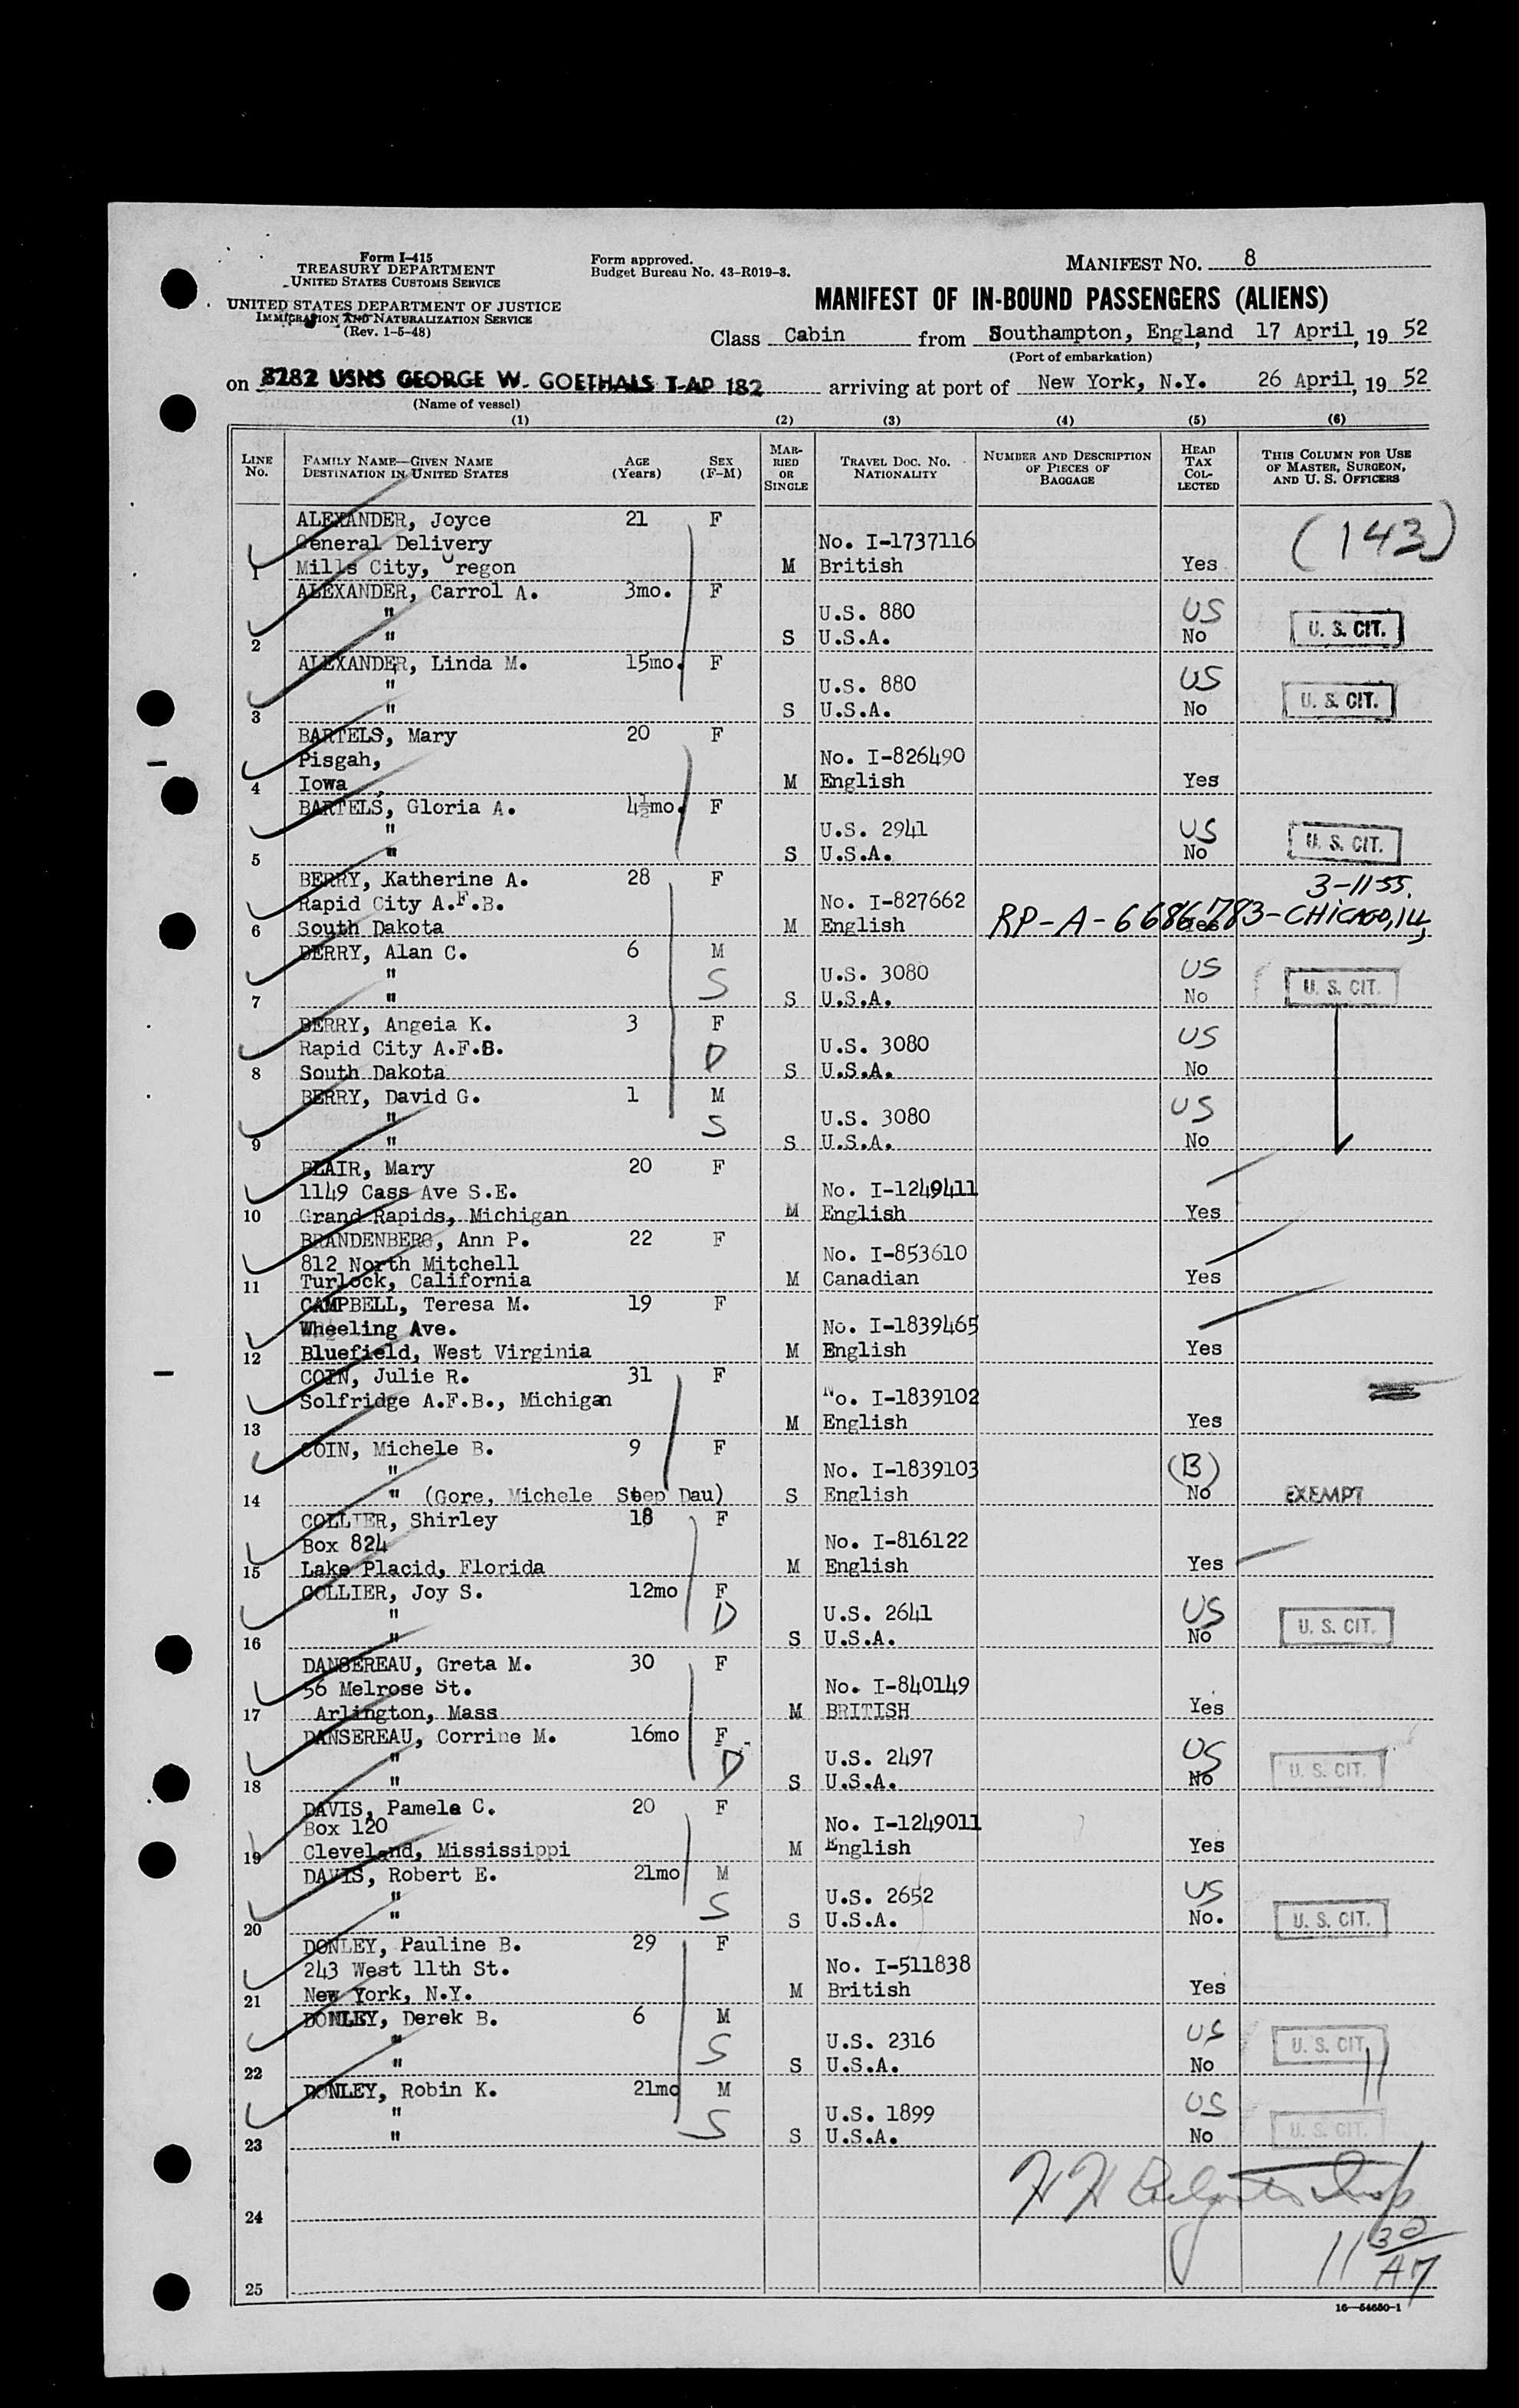 Form I-415
TREASURY DEPARTMENT
UNITED STATES CUSTOMS SERVICE
UNITED STATES DEPARTMENT OF JUSTICE
IMMIGRATION AND NATURALIZATION SERVICE
(Rev. 1-5-48)
Form approved.
Budget Bureau No. 43-R019-3.
MANIFEST NO. 8
MANIFEST OF IN-BOUND PASSENGERS (ALIENS)
Class Cabin from Southampton, England, 17 April, 19 52
(Port of embarkation)
on 8282 USNS GEORGE W. GOETHALS T-AP 182 arriving at port of New York, N.Y. 26 April, 19 52
(Name of vessel)
(1) (2) (3) (4) (5) (6)
LINE No. FAMILY NAME—GIVEN NAME DESTINATION IN UNITED STATES AGE (Years) SEX (F-M) MARRIED OR SINGLE TRAVEL DOC. NO. NATIONALITY NUMBER AND DESCRIPTION OF PIECES OF BAGGAGE HEAD TAX COLLECTED THIS COLUMN FOR USE OF MASTER, SURGEON, AND U. S. OFFICERS
ALEXANDER, Joyce 21 F (143)
General Delivery No. I-1737116
1 Mills City, Oregon M British Yes
ALEXANDER, Carrol A. 3mo. F
" U.S. 880 US
2 " S U.S.A. No U. S. CIT.
ALEXANDER, Linda M. 15mo. F
" U.S. 880 US
3 " S U.S.A. No U. S. CIT.
BARTELS, Mary 20 F
Pisgah, No. I-826490
4 Iowa M English Yes
BARTELS, Gloria A. 4½mo. F
" U.S. 2941 US
5 " S U.S.A. No U. S. CIT.
BERRY, Katherine A. 28 F 3-11-55.
Rapid City A.F.B. No. I-827662
6 South Dakota M English Yes RP-A-6686783-CHICAGO, ILL,
BERRY, Alan C. 6 M
" S U.S. 3080 US
7 " S U.S.A. No U. S. CIT.
BERRY, Angeia K. 3 F
Rapid City A.F.B. D U.S. 3080 US
8 South Dakota S U.S.A. No
BERRY, David G. 1 M
" S U.S. 3080 US
9 " S U.S.A. No
BLAIR, Mary 20 F
1149 Cass Ave S.E. No. I-1249411
10 Grand Rapids, Michigan M English Yes
BRANDENBERG, Ann P. 22 F
812 North Mitchell No. I-853610
11 Turlock, California M Canadian Yes
CAMPBELL, Teresa M. 19 F
Wheeling Ave. No. I-1839465
12 Bluefield, West Virginia M English Yes
COIN, Julie R. 31 F
Solfridge A.F.B., Michigan No. I-1839102
13 M English Yes
COIN, Michele B. 9 F
" No. I-1839103 (B)
14 " (Gore, Michele Step Dau) S English No EXEMPT
COLLIER, Shirley 18 F
Box 824 No. I-816122
15 Lake Placid, Florida M English Yes
COLLIER, Joy S. 12mo F
" D U.S. 2641 US
16 " S U.S.A. No U. S. CIT.
DANSEREAU, Greta M. 30 F
56 Melrose St. No. I-840149
17 Arlington, Mass M BRITISH Yes
DANSEREAU, Corrine M. 16mo F
" D U.S. 2497 US
18 " S U.S.A. No U. S. CIT.
DAVIS, Pamela C. 20 F
Box 120 No. I-1249011
19 Cleveland, Mississippi M English Yes
DAVIS, Robert E. 21mo M
" S U.S. 2652 US
20 " S U.S.A. No. U. S. CIT.
DONLEY, Pauline B. 29 F
243 West 11th St. No. I-511838
21 New York, N.Y. M British Yes
DONLEY, Derek B. 6 M
" S U.S. 2316 US
22 " S U.S.A. No U. S. CIT.
DONLEY, Robin K. 21mo M
" S U.S. 1899 US
23 " S U.S.A. No U. S. CIT.
24
25
16—54650-1